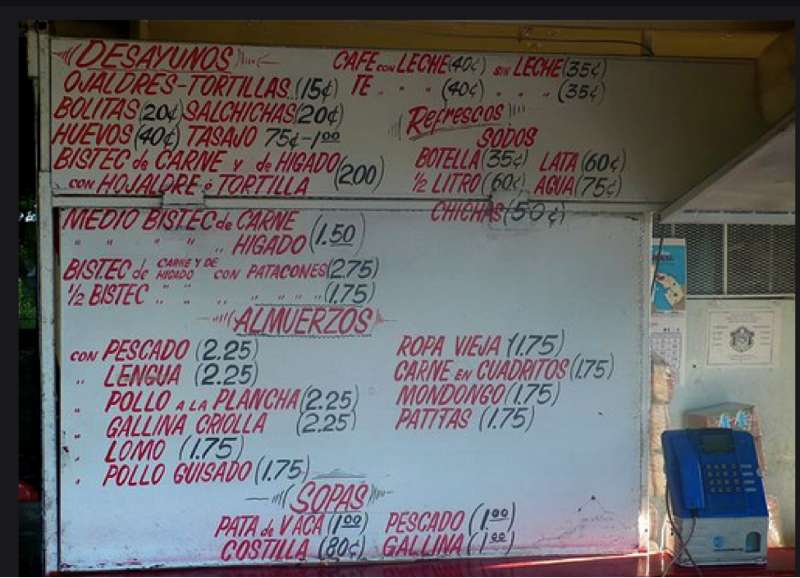 DESAYUNOS
CAFE con LECHE (40¢) sin LECHE (35¢)
OJALDRES-TORTILLAS..(15¢) TE „ „ „ (40¢) „ „ „ (35¢)
BOLITAS (20¢) SALCHICHAS (20¢)
HUEVOS (40¢) TASAJO 75¢-1.00
BISTEC de CARNE y de HIGADO (2.00)
con HOJALDRE ó TORTILLA
Refrescos
SODOS
BOTELLA (35¢) LATA (60¢)
½ LITRO (60¢) AGUA (75¢)
CHICHAS (50¢)
MEDIO BISTEC de CARNE
„ „ „ „ „ HIGADO (1.50)
BISTEC de CARNE Y DE HIGADO con PATACONES (2.75)
½ BISTEC „ „ „ „ „ „ „ (1.75)
ALMUERZOS
con PESCADO (2.25)
„ LENGUA (2.25)
„ POLLO A LA PLANCHA (2.25)
„ GALLINA CRIOLLA (2.25)
„ LOMO (1.75)
„ POLLO GUISADO (1.75)
ROPA VIEJA (1.75)
CARNE en CUADRITOS (1.75)
MONDONGO (1.75)
PATITAS (1.75)
SOPAS
PATA de VACA (1.00) PESCADO (1.00)
COSTILLA (80¢) GALLINA (1.00)